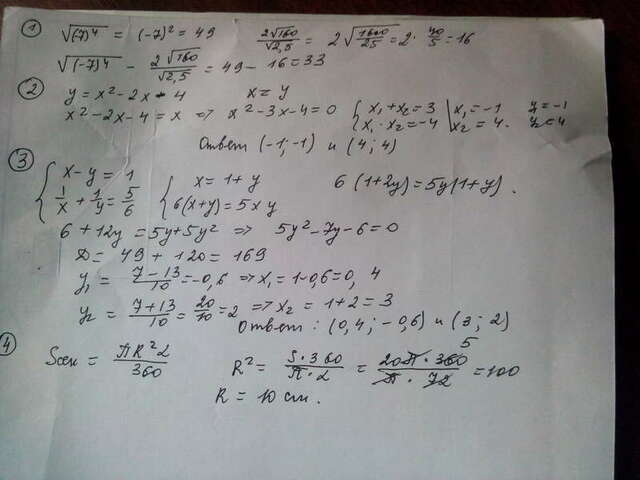 ① √(-7)⁴ = (-7)² = 49   2√160/√2,5 = 2√1600/25 = 2· 40/5 = 16
√(-7)⁴ - 2√160/√2,5 = 49 - 16 = 33
② y = x² - 2x - 4   x = y
x² - 2x - 4 = x ⇒ x² - 3x - 4 = 0 { x₁ + x₂ = 3 | x₁ = -1   y = -1
x₁ · x₂ = -4 | x₂ = 4.   y = 4
Ответ (-1; -1) и (4; 4)
③ { x - y = 1   { x = 1 + y   6(1+2y) = 5y(1+y).
1/x + 1/y = 5/6   6(x+y) = 5xy
6 + 12y = 5y + 5y² ⇒ 5y² - 7y - 6 = 0
D = 49 + 120 = 169
y₁ = 7-13/10 = -0,6 ⇒ x₁ = 1-0,6 = 0,4
y₂ = 7+13/10 = 20/10 = 2 ⇒ x₂ = 1+2 = 3
Ответ: (0,4; -0,6) и (3; 2)
④ Sсек = πR²α/360   R² = S·360/π·α = 20π·360/π·72 = 100
5
R = 10 см.